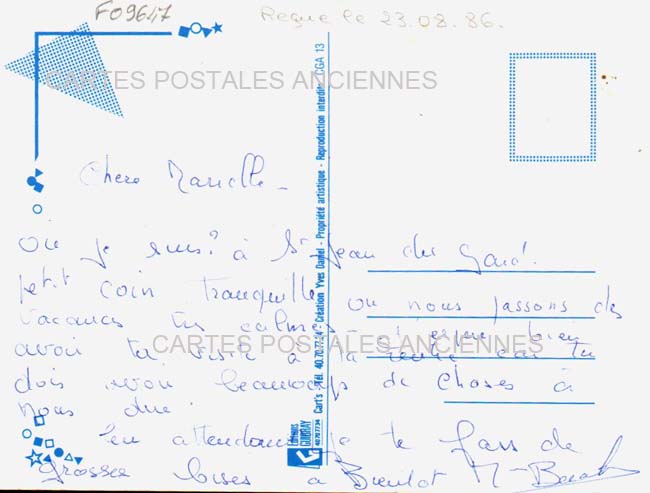 F09647
Reçue le 23.08.86.
CARTES POSTALES ANCIENNES
Chere Marielle -
Où je suis? à St Jean du Gard.
petit coin tranquille où nous passons des
vacances très calmes - J'espère bien
avoir ta visite à la rentrée car tu
CARTES POSTALES ANCIENNES
dois avoir beaucoup de choses à
nous dire.
En attendant je te fais de
grosses bises à Bientot
Cart's - Tél. 40.70.77.34 - Création Yves Daniel - Propriété artistique - Reproduction interdite CGA 13
EDITIONS
GUIBRAY
40707734